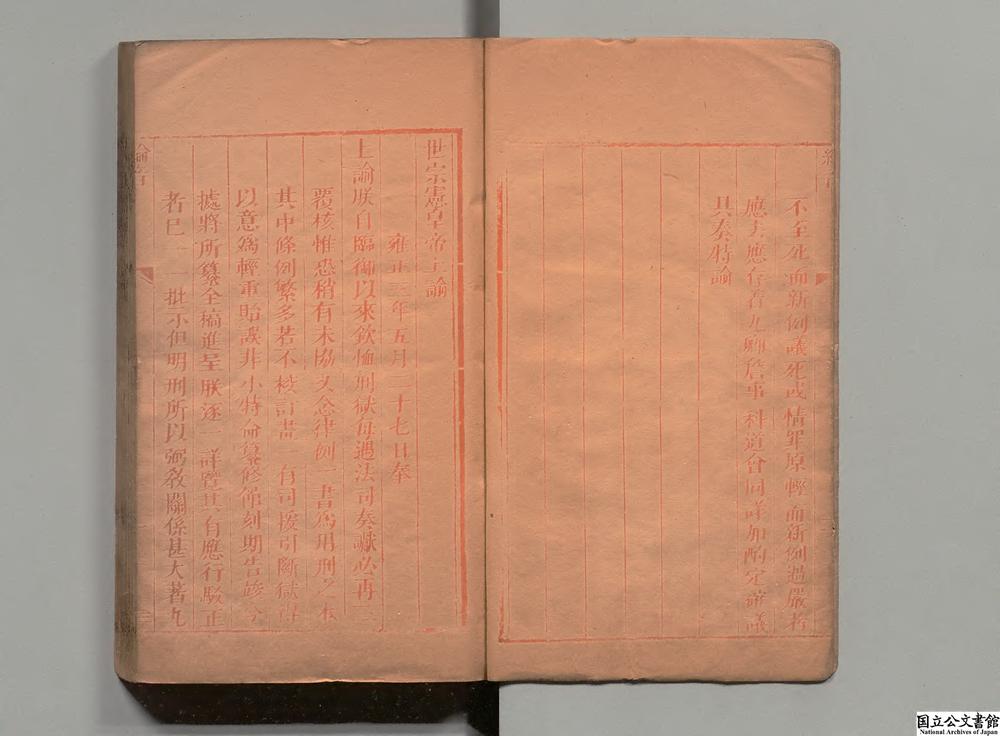 不至死而新例議死或情罪原輕而新例過嚴者
應去應存着九卿詹事科道會同詳加酌定確議
具奏特諭
世宗憲皇帝上諭
雍正三年五月二十七日奉
上諭朕自臨御以來欽恤刑獄每遇法司奏讞必再三
覆核惟恐稍有未協又念律例一書為用刑之本
其中條例繁多若不校訂畫一有司援引斷獄得
以意為輕重貽誤非小特命纂修館刻期告竣今
據將所纂全稿進呈朕逐一詳覽其有應行駁正
者已一一批示但明刑所以弼教關係甚大著九
国立公文書館
National Archives of Japan